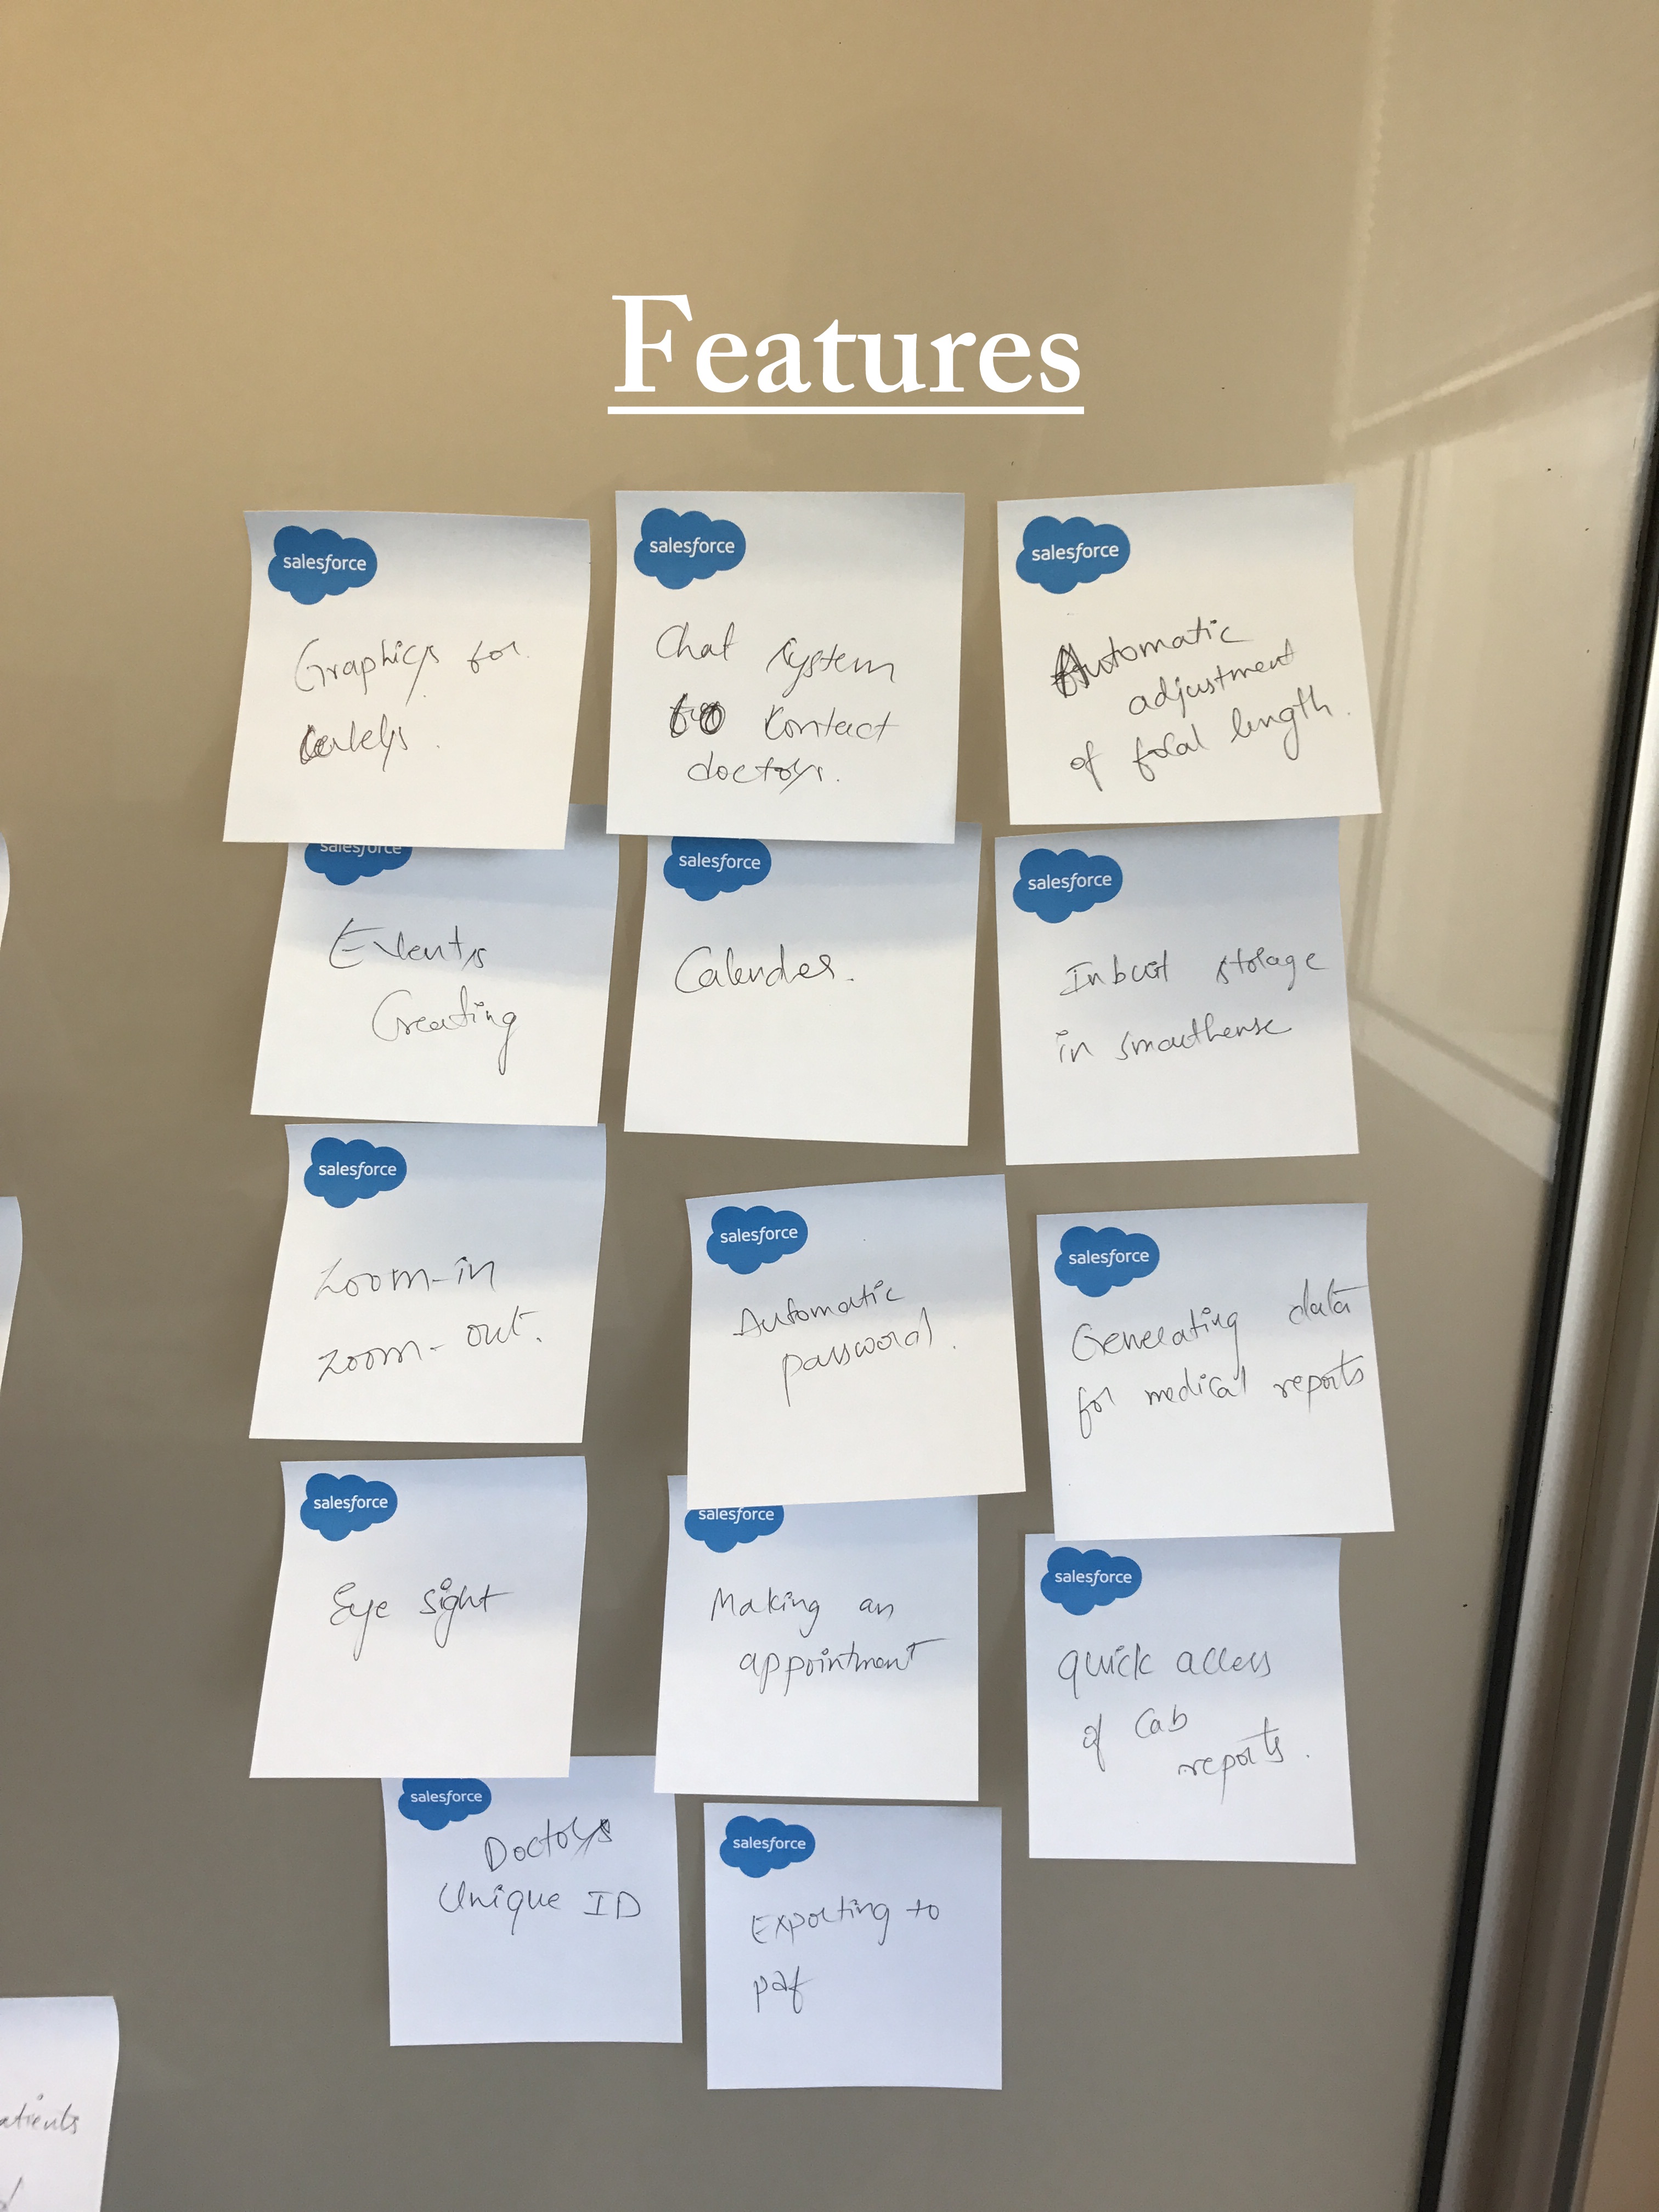 Features
salesforce
Graphics for
salesforce
Chat system
to contact
doctors.
salesforce
Automatic
adjustment
of focal length.
salesforce
Events
Creating
salesforce
Calender.
salesforce
Inbuit storage
in smartlense
salesforce
Zoom-in
zoom-out.
salesforce
Automatic
password.
salesforce
Generating data
for medical reports
salesforce
Eye sight
salesforce
Making an
appointment
salesforce
quick access
of Cab
reports.
salesforce
Doctors
Unique ID
salesforce
Exporting to
pdf